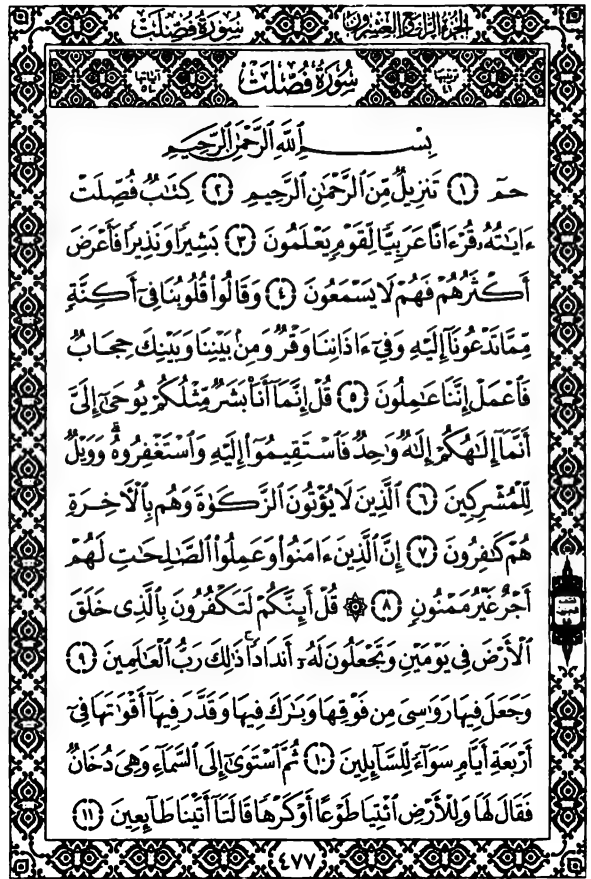 سُورَةُ فُصِّلَتْ الجزء الرابع والعشرون
سُورَةُ فُصِّلَتْ
بِسْمِ ٱللَّهِ ٱلرَّحْمَٰنِ ٱلرَّحِيمِ
حمٓ ١ تَنزِيلٌ مِّنَ ٱلرَّحْمَٰنِ ٱلرَّحِيمِ ٢ كِتَٰبٌ فُصِّلَتْ
ءَايَٰتُهُۥ قُرْءَانًا عَرَبِيًّا لِّقَوْمٍ يَعْلَمُونَ ٣ بَشِيرًا وَنَذِيرًا فَأَعْرَضَ
أَكْثَرُهُمْ فَهُمْ لَا يَسْمَعُونَ ٤ وَقَالُوا۟ قُلُوبُنَا فِىٓ أَكِنَّةٍ
مِّمَّا تَدْعُونَآ إِلَيْهِ وَفِىٓ ءَاذَانِنَا وَقْرٌ وَمِنۢ بَيْنِنَا وَبَيْنِكَ حِجَابٌ
فَٱعْمَلْ إِنَّنَا عَٰمِلُونَ ٥ قُلْ إِنَّمَآ أَنَا۠ بَشَرٌ مِّثْلُكُمْ يُوحَىٰٓ إِلَىَّ
أَنَّمَآ إِلَٰهُكُمْ إِلَٰهٌ وَٰحِدٌ فَٱسْتَقِيمُوٓا۟ إِلَيْهِ وَٱسْتَغْفِرُوهُ ۗ وَوَيْلٌ
لِّلْمُشْرِكِينَ ٦ ٱلَّذِينَ لَا يُؤْتُونَ ٱلزَّكَوٰةَ وَهُم بِٱلْءَاخِرَةِ
هُمْ كَٰفِرُونَ ٧ إِنَّ ٱلَّذِينَ ءَامَنُوا۟ وَعَمِلُوا۟ ٱلصَّٰلِحَٰتِ لَهُمْ
أَجْرٌ غَيْرُ مَمْنُونٍ ٨ ۞ قُلْ أَئِنَّكُمْ لَتَكْفُرُونَ بِٱلَّذِى خَلَقَ
ٱلْأَرْضَ فِى يَوْمَيْنِ وَتَجْعَلُونَ لَهُۥٓ أَندَادًا ۚ ذَٰلِكَ رَبُّ ٱلْعَٰلَمِينَ ٩
وَجَعَلَ فِيهَا رَوَٰسِىَ مِن فَوْقِهَا وَبَٰرَكَ فِيهَا وَقَدَّرَ فِيهَآ أَقْوَٰتَهَا فِىٓ
أَرْبَعَةِ أَيَّامٍ سَوَآءً لِّلسَّآئِلِينَ ١٠ ثُمَّ ٱسْتَوَىٰٓ إِلَى ٱلسَّمَآءِ وَهِىَ دُخَانٌ
فَقَالَ لَهَا وَلِلْأَرْضِ ٱئْتِيَا طَوْعًا أَوْ كَرْهًا قَالَتَآ أَتَيْنَا طَآئِعِينَ ١١
٤٧٧